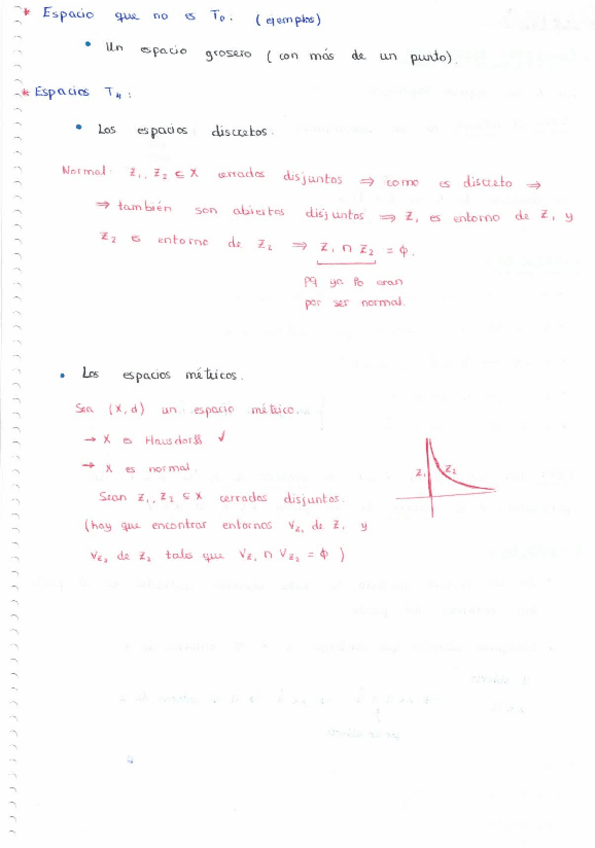 * Espacio que no es T₀: (ejemplos)
• Un espacio grosero (con más de un punto).
* Espacios T₄:
• Los espacios discretos.
Normal: Z₁, Z₂ ⊆ X cerrados disjuntos ⇒ como es discreto ⇒
⇒ también son abiertos disjuntos ⇒ Z₁ es entorno de Z₁ y
Z₂ es entorno de Z₂ ⇒ Z₁ ∩ Z₂ = ϕ.
pq ya lo eran
por ser normal.
• Los espacios métricos.
Sea (X, d) un espacio métrico.
→ X es Hausdorff ✓
→ X es normal.
Z₁ Z₂
Sean Z₁, Z₂ ⊆ X cerrados disjuntos.
(hay que encontrar entornos V_Z₁ de Z₁ y
V_Z₂ de Z₂ tales que V_Z₁ ∩ V_Z₂ = ϕ)